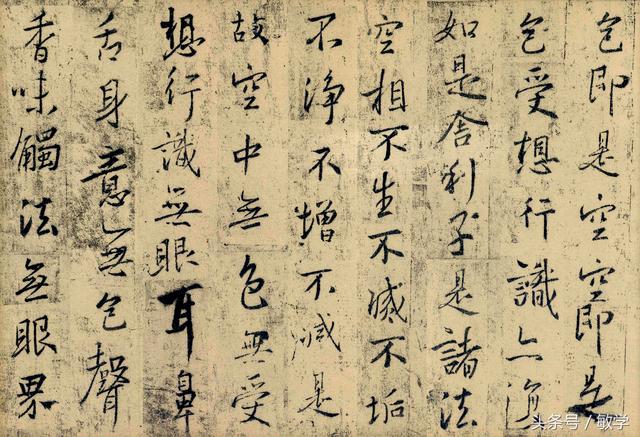 色即是空空即是
色受想行識亦復
如是舍利子是諸法
空相不生不滅不垢
不淨不增不減是
故空中無色無受
想行識無眼耳鼻
舌身意無色聲
香味觸法無眼界
头条号 / 敏学